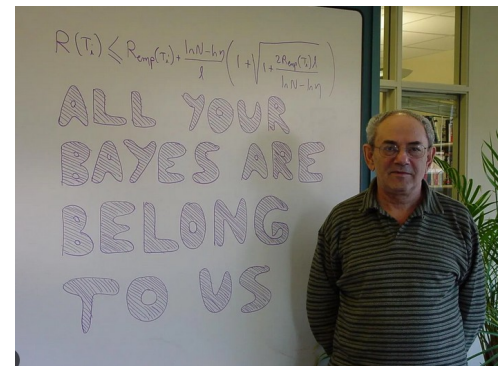 R(Tᵢ) ≤ R_emp(Tᵢ) + (ln N − ln η)/l (1 + √(1 + 2R_emp(Tᵢ)l/(ln N − ln η)))
ALL YOUR
BAYES ARE
BELONG
TO US